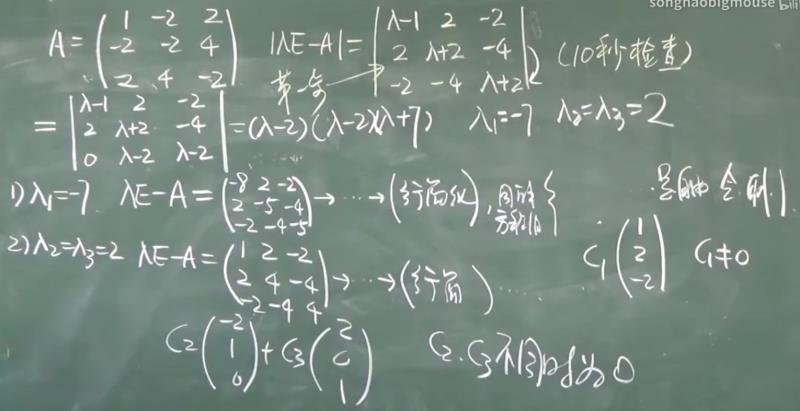 songhaobigmouse bili
A = ( 1 -2 2 ; -2 -2 4 ; 2 4 -2 ) |λE-A| = | λ-1 2 -2 ; 2 λ+2 -4 ; -2 -4 λ+2 | (10秒检查)
第一步
= | λ-1 2 -2 ; 2 λ+2 -4 ; 0 λ-2 λ-2 | = (λ-2)(λ-2)(λ+7) λ₁=-7 λ₂=λ₃=2
1) λ₁=-7 λE-A = ( -8 2 -2 ; 2 -5 -4 ; -2 -4 -5 ) → ⋯ → (行简
2) λ₂=λ₃=2 λE-A = ( 1 2 -2 ; 2 4 -4 ; -2 -4 4 ) → ⋯ → (行简) ⋯⋯
C₁ ( 1 ; 2 ; -2 ) C₁≠0
C₂ ( -2 ; 1 ; 0 ) + C₃ ( 2 ; 0 ; 1 ) C₂.C₃不同时为0